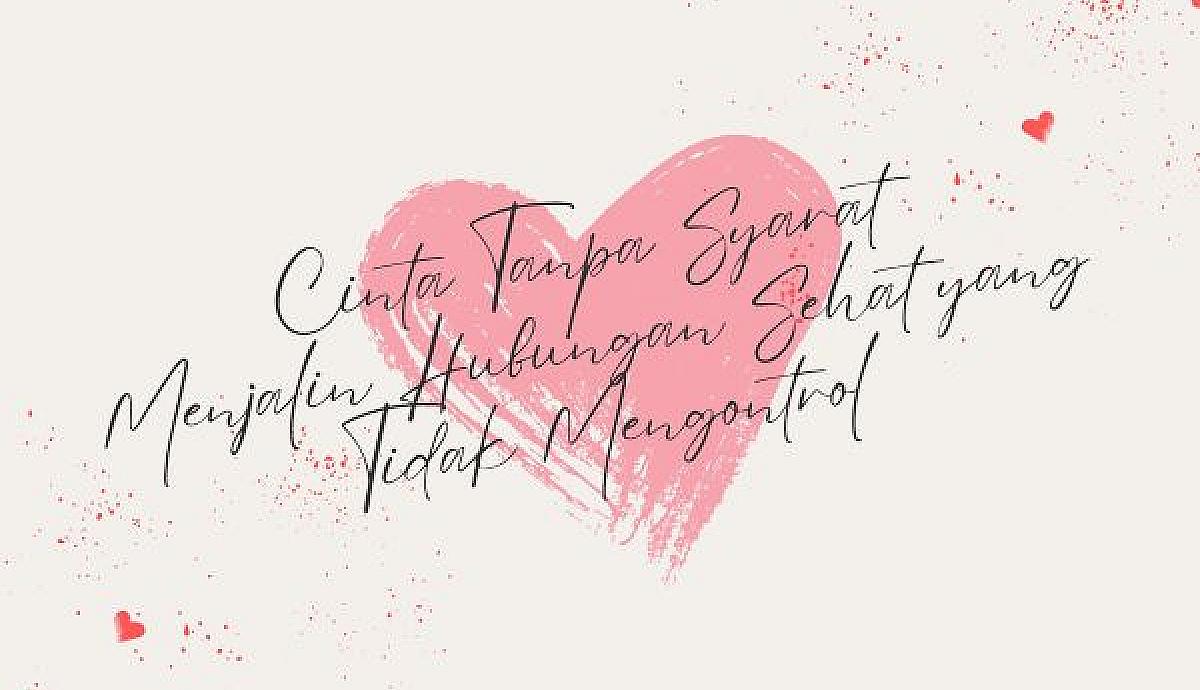 Cinta Tanpa Syarat
Menjalin Hubungan Sehat yang
Tidak Mengontrol